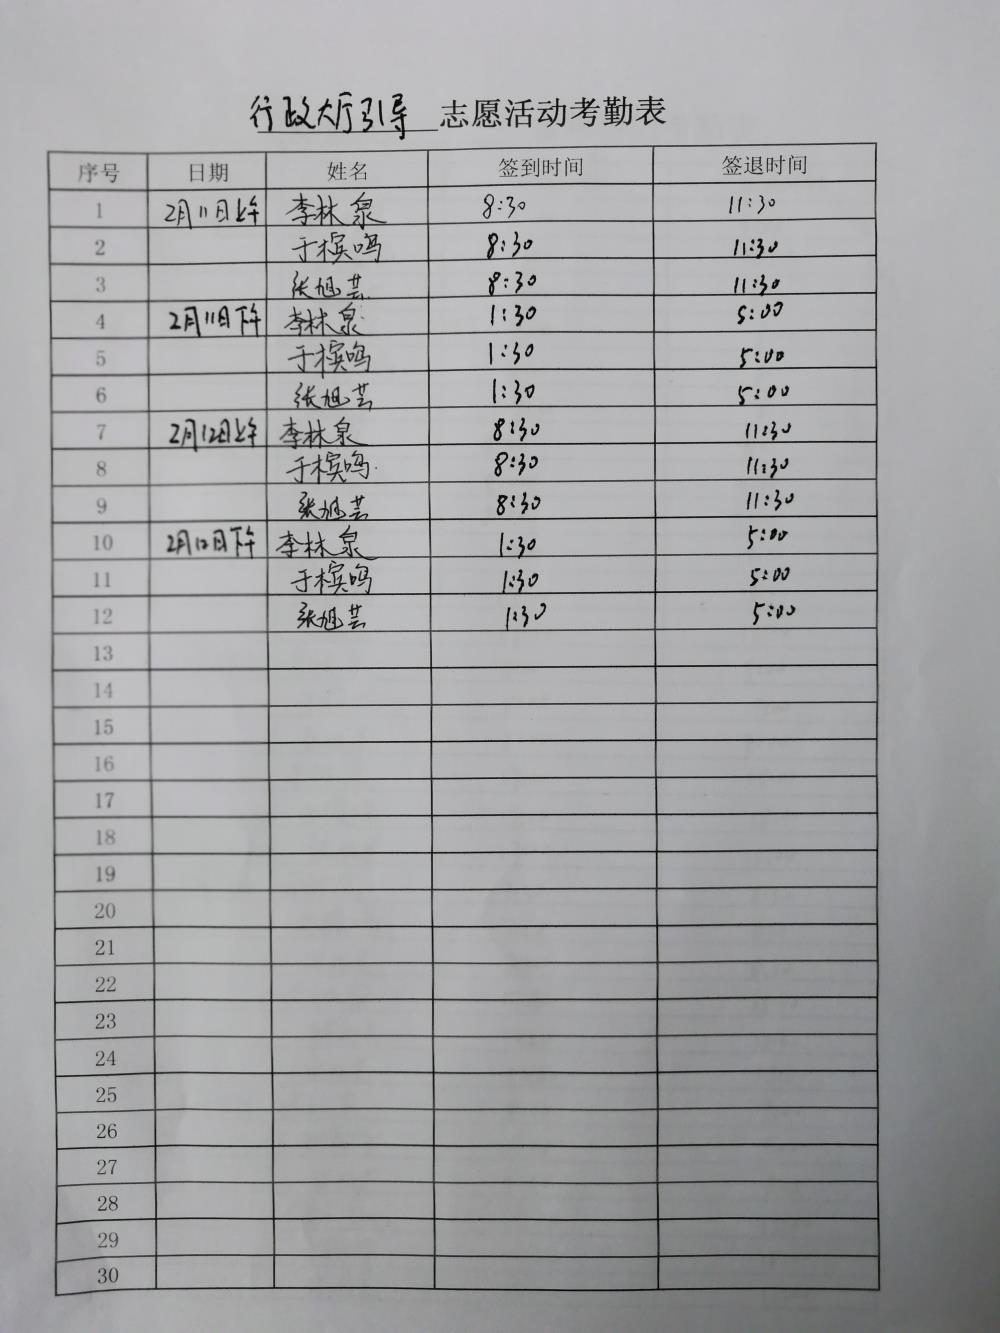 行政大厅引导 志愿活动考勤表
序号 日期 姓名 签到时间 签退时间
1 2月11日上午 李林泉 8:30 11:30
2 于槟鸣 8:30 11:30
3 张旭芸 8:30 11:30
4 2月11日下午 李林泉 1:30 5:00
5 于槟鸣 1:30 5:00
6 张旭芸 1:30 5:00
7 2月12日上午 李林泉 8:30 11:30
8 于槟鸣 8:30 11:30
9 张旭芸 8:30 11:30
10 2月12日下午 李林泉 1:30 5:00
11 于槟鸣 1:30 5:00
12 张旭芸 1:30 5:00
13
14
15
16
17
18
19
20
21
22
23
24
25
26
27
28
29
30